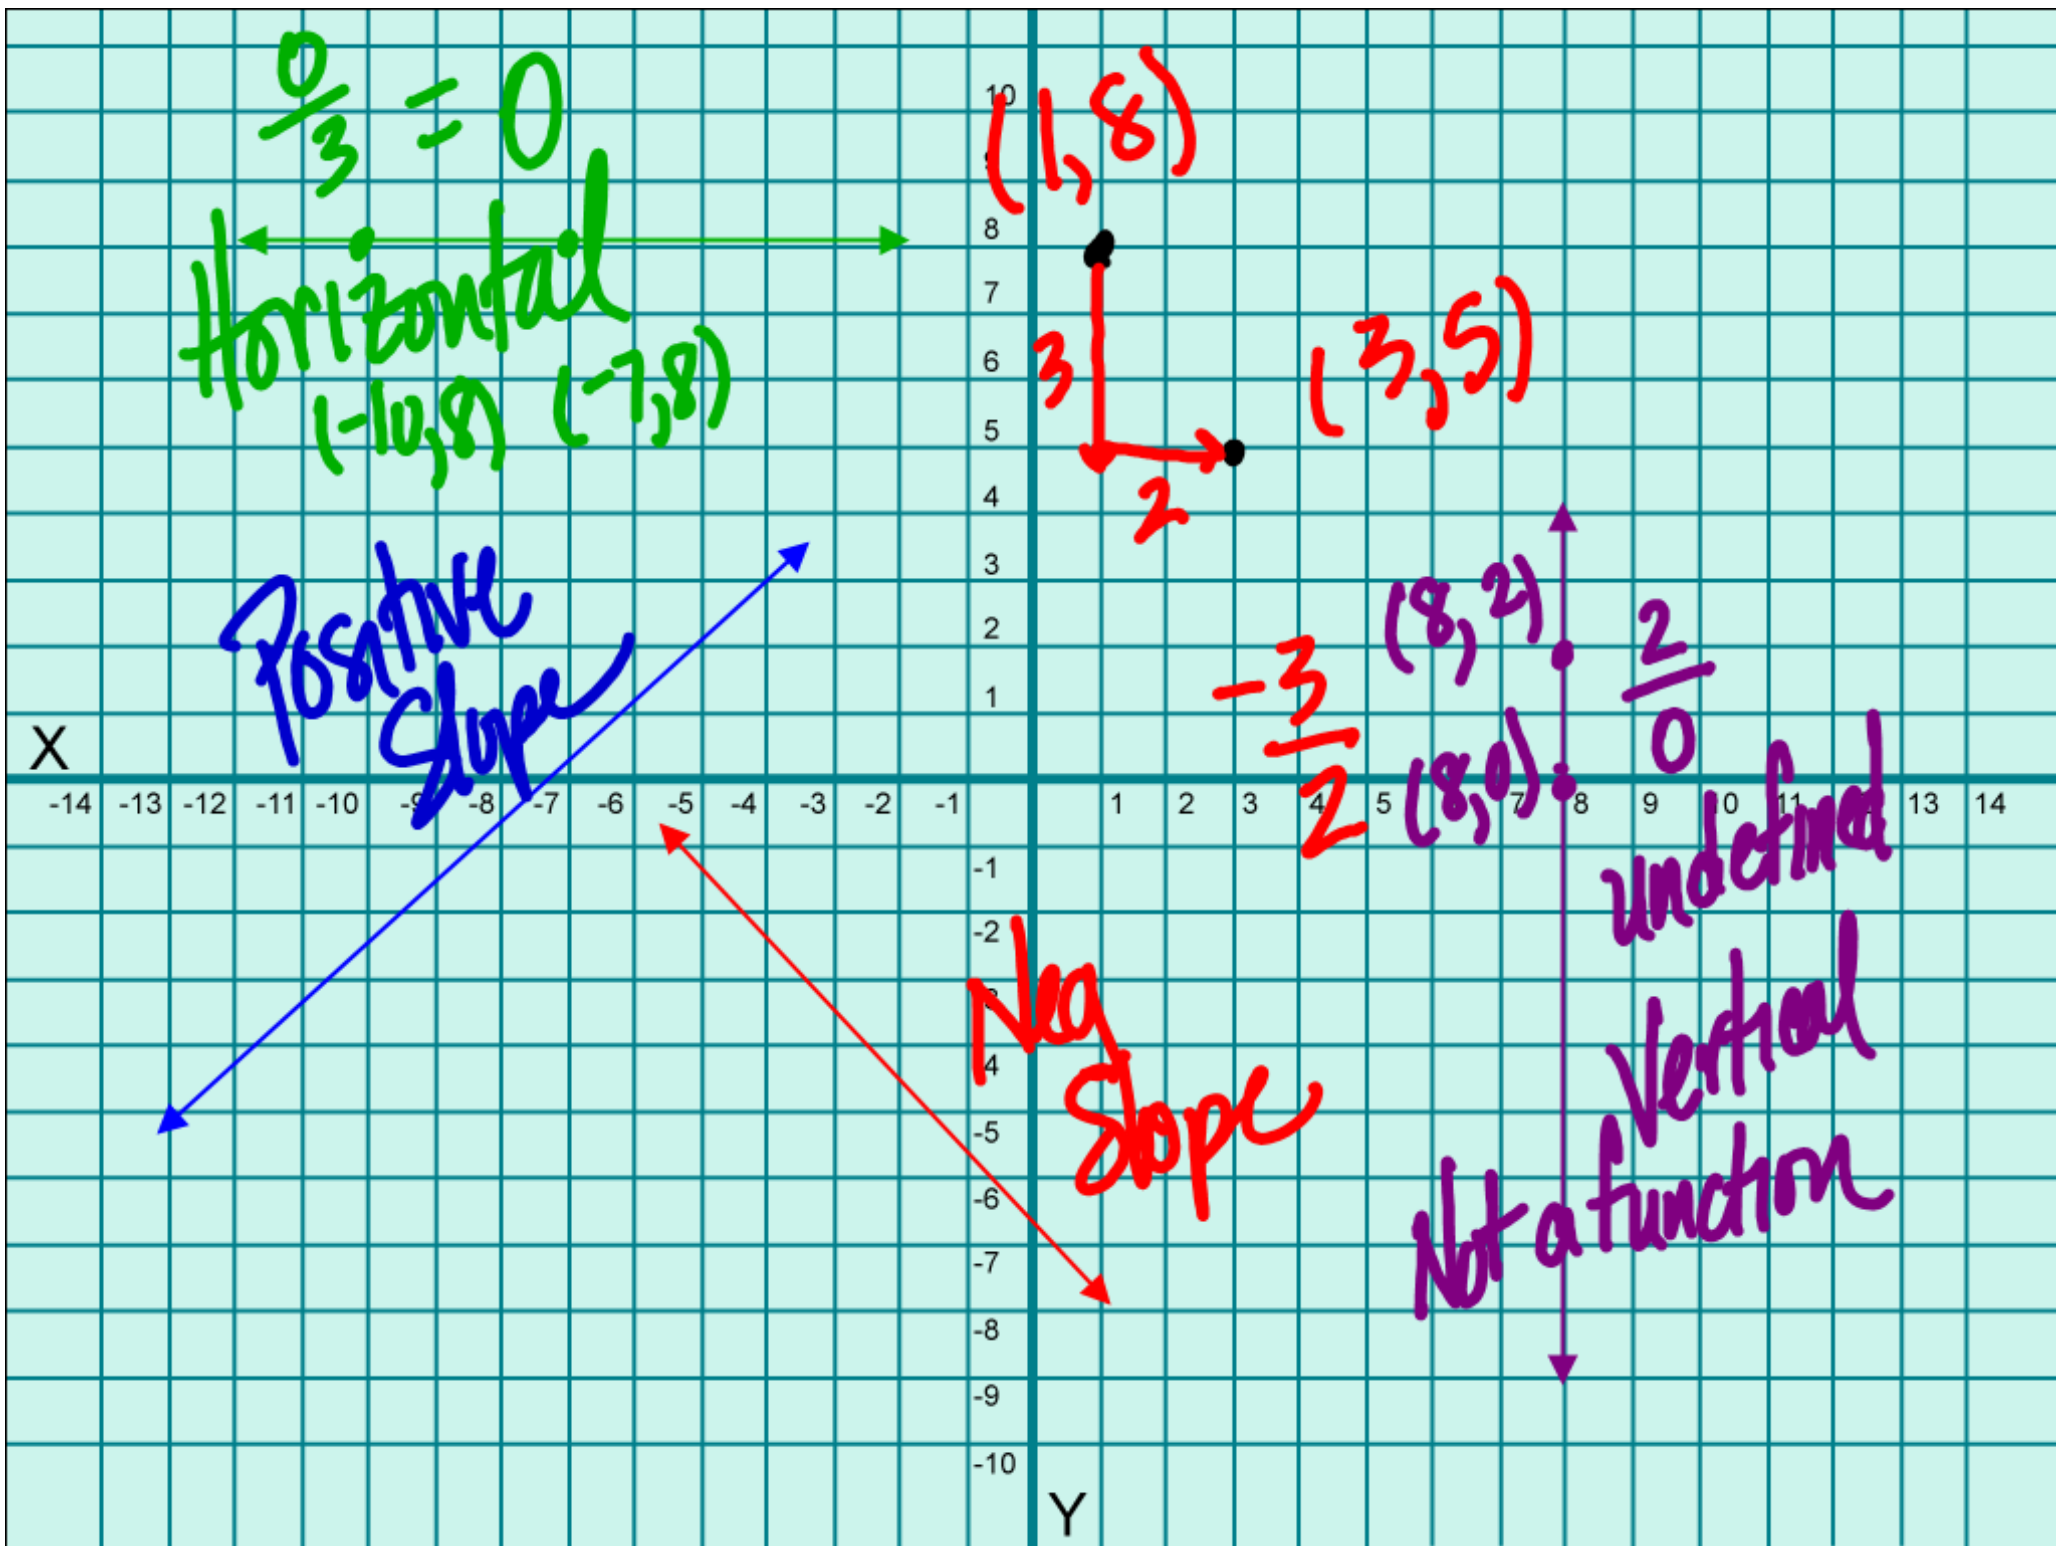 0/3 = 0
Horizontal
(-10,8) (-7,8)
(1,8)
3
2
(3,5)
-3/2
Positive
Slope
Neg
Slope
(8,2)
(8,0)
2/0
undefined
Vertical
Not a function
X
-14 -13 -12 -11 -10 -9 -8 -7 -6 -5 -4 -3 -2 -1 1 2 3 4 5 7 8 9 10 11 12 13 14
10
9
8
7
6
5
4
3
2
1
-1
-2
-3
-4
-5
-6
-7
-8
-9
-10
Y